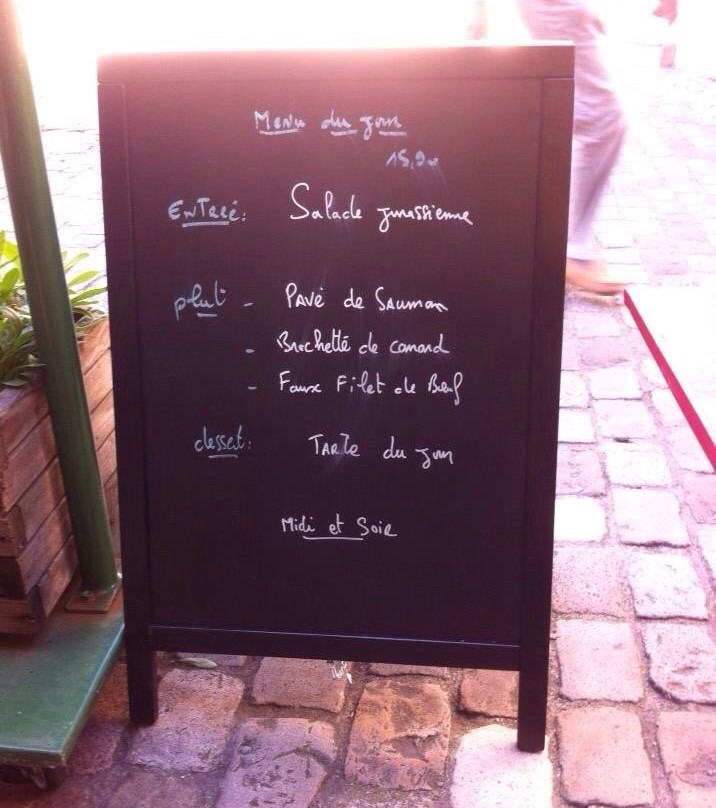 Menu du jour
15,90
Entrée: Salade jurassienne
plat - Pavé de Saumon
- Brochette de canard
- Faux Filet de Bœuf
dessert: Tarte du jour
Midi et Soir